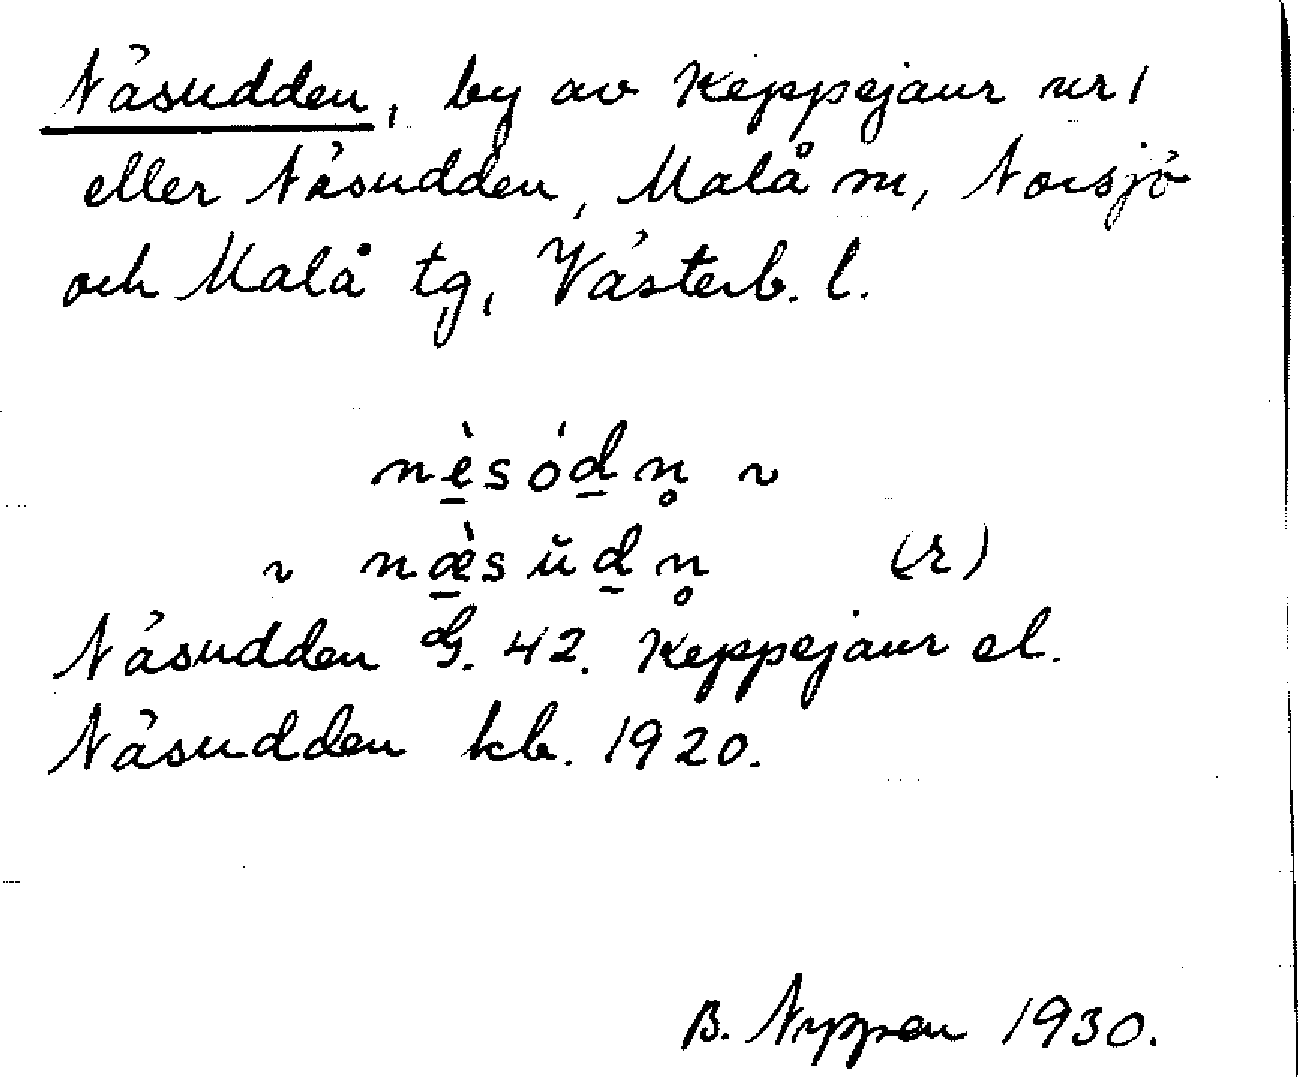 Näsudden, by av Keppejaur nr 1
eller Näsudden, Malå sn, Norsjö
och Malå tg, Västerb. l.
nè̱sóḏn̥ ~
~ næ̱̀sŭḏn̥ (r)
Näsudden G. 42. Keppejaur el.
Näsudden kb. 1920.
B. Nyppen 1930.